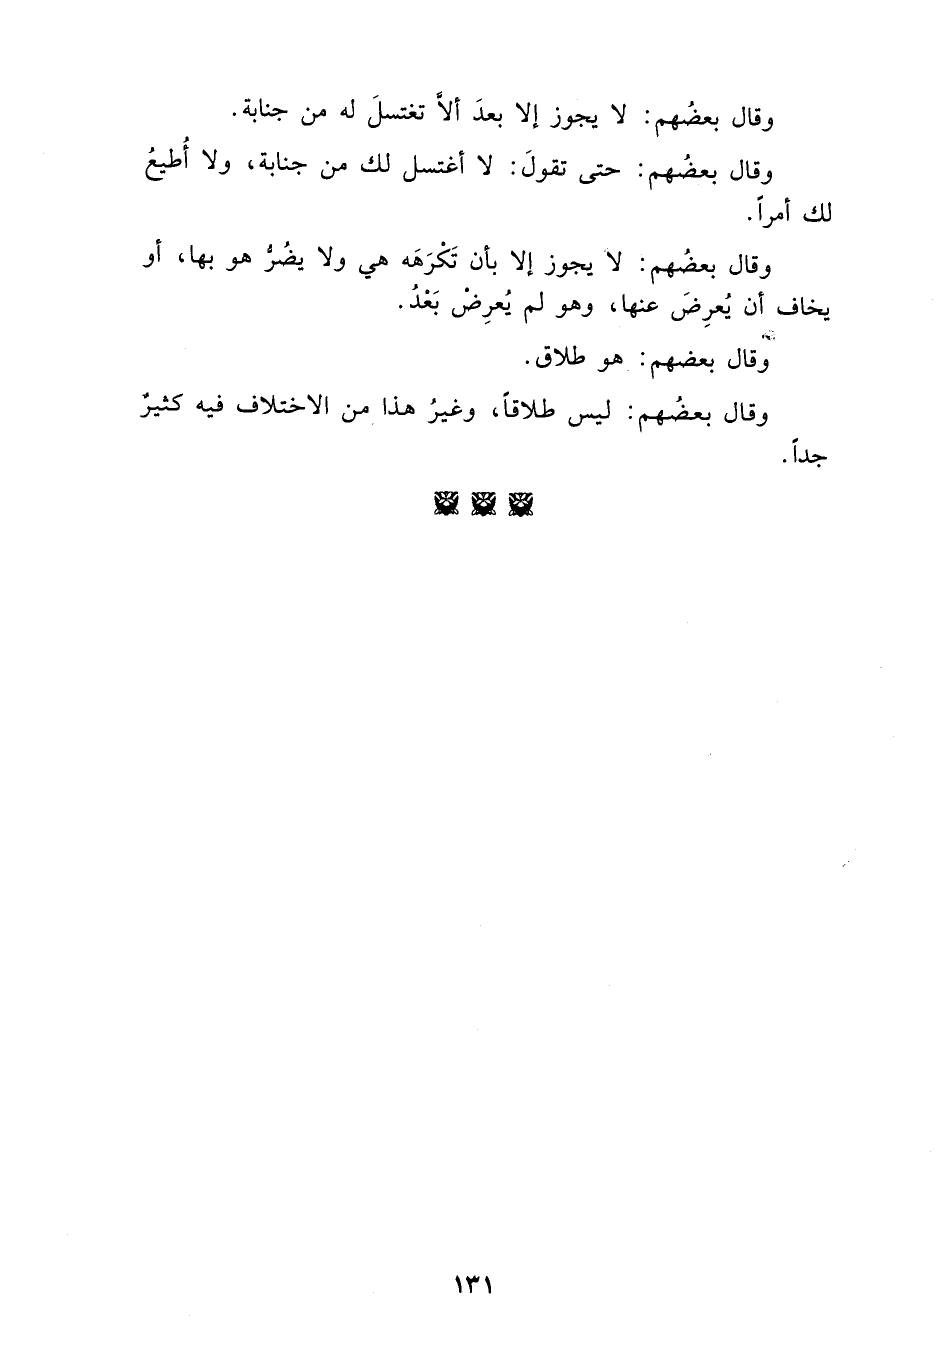 وقال بعضُهم: لا يجوز إلا بعدَ ألاَّ تغتسلَ له من جنابة.
وقال بعضُهم: حتى تقولَ: لا أغتسل لك من جنابة، ولا أُطيعُ
لك أمراً.
وقال بعضُهم: لا يجوز إلا بأن تَكْرَهَه هي ولا يضُرُّ هو بها، أو
يخاف أن يُعرِضَ عنها، وهو لم يُعرِضْ بَعْدُ.
وقال بعضهم: هو طلاق.
وقال بعضُهم: ليس طلاقاً، وغيرُ هذا من الاختلاف فيه كثيرٌ
جداً.
١٣١